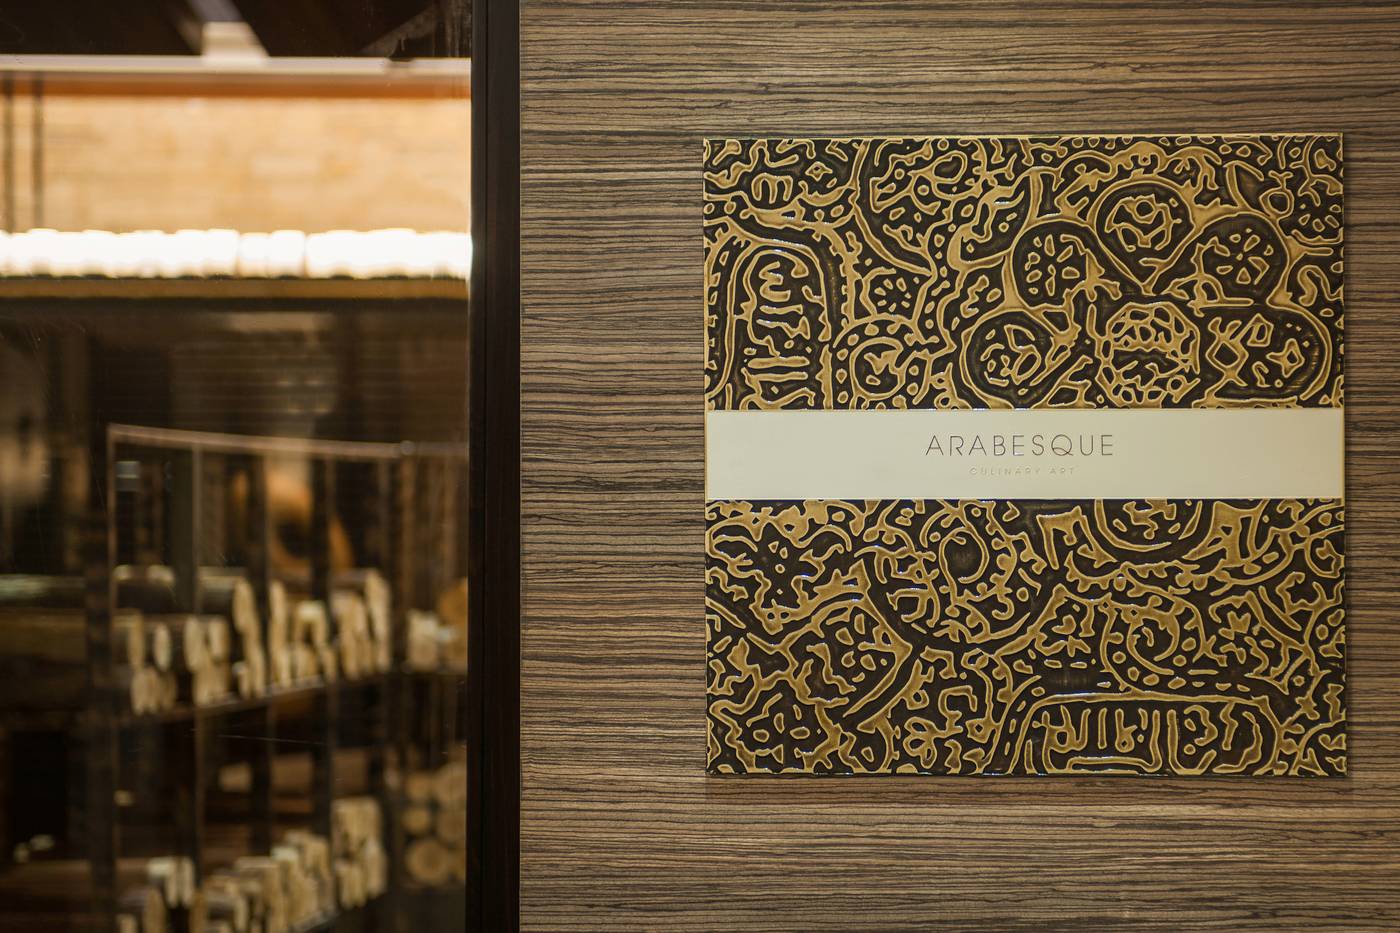 ARABESQUE
CULINARY ART